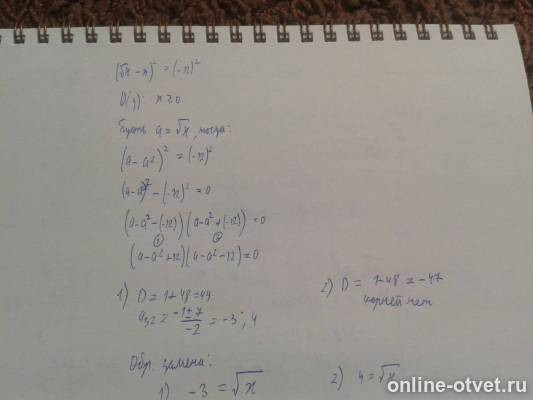 (√x - x)² = (-12)²
D(y): x ≥ 0
Пусть a = √x, тогда:
(a - a²)² = (-12)²
(a - a²)² - (-12)² = 0
(a - a² - (-12))(a - a² + (-12)) = 0
① ②
(a - a² + 12)(a - a² - 12) = 0
1) D = 1 + 48 = 49
a₁,₂ = -1±7/-2 = -3; 4
2) D = 1 - 48 = -47
корней нет
Обр. замена:
1) -3 = √x
2) 4 = √x
online-otvet.ru